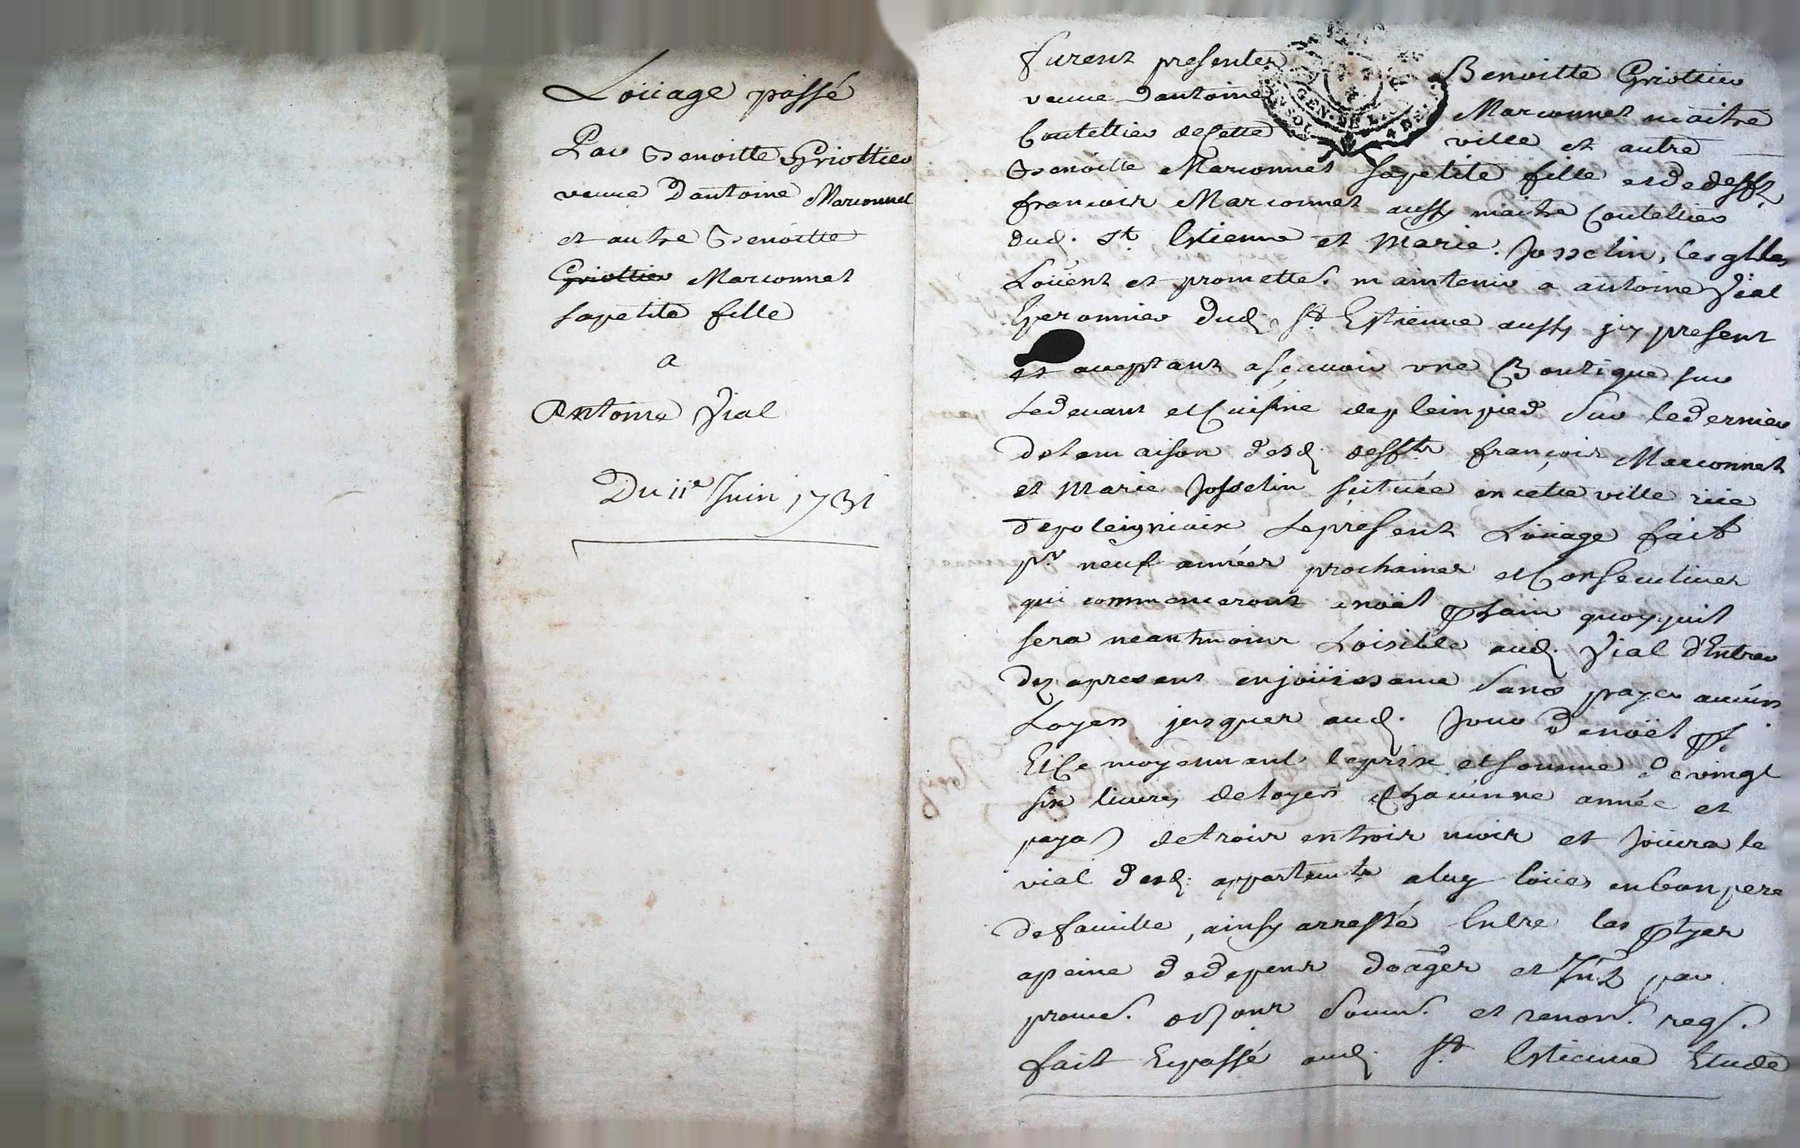 Loüage passé
Par Benoitte Griottier
veuve Dantoine Marconnet
et autre Benoitte
Griottier Marconnet
sapetite fille
a
Antoine Vial
Du 11e Juin 1731
furent presentes Benoitte Griottier
veuve Dantoine Marconnet maitre
Coutellier decette ville et autre
Benoitte Marconnet sapetite fille et de defft
francois Marconnet aussy maitre Coutelier
dud. St. Estienne et Marie Josselin, lesqlles
Loüent et promettt. maintenir a antoine Vial
Eperonnier dud. St Estienne aussy jcy present
et aceptant asçavoir une Boutique sur
ledevant et Cuisine depleinpied sur lederrier
delamaison desd. deffts françois Marconnet
et Marie Josselin scituée encette ville rüe
depoleigniaix Lepresent Loüage fait
pr. neuf années prochaines et Consecutives
qui commenceront anoël pchain quoyquil
sera neantmoins Loisible aud. Vial d'Entrer
dez apresent enjoüissance sans payer aucun
Loyen jusques aud. Jour denoël pt.
Et Ce moyennant leprix et somme de vingt
six livres deloyer chacunne année et
paya) detrois entrois mois et Joüira le
vial desd. appartemts aluy loües enbon pere
defamille, ainsy arresté Entre les ptyes
apeine de depens doages et Jnts par
promes. oblons soums. et renons. reqs.
fait Expassé aud. St Estienne Etude
GEN. DE L